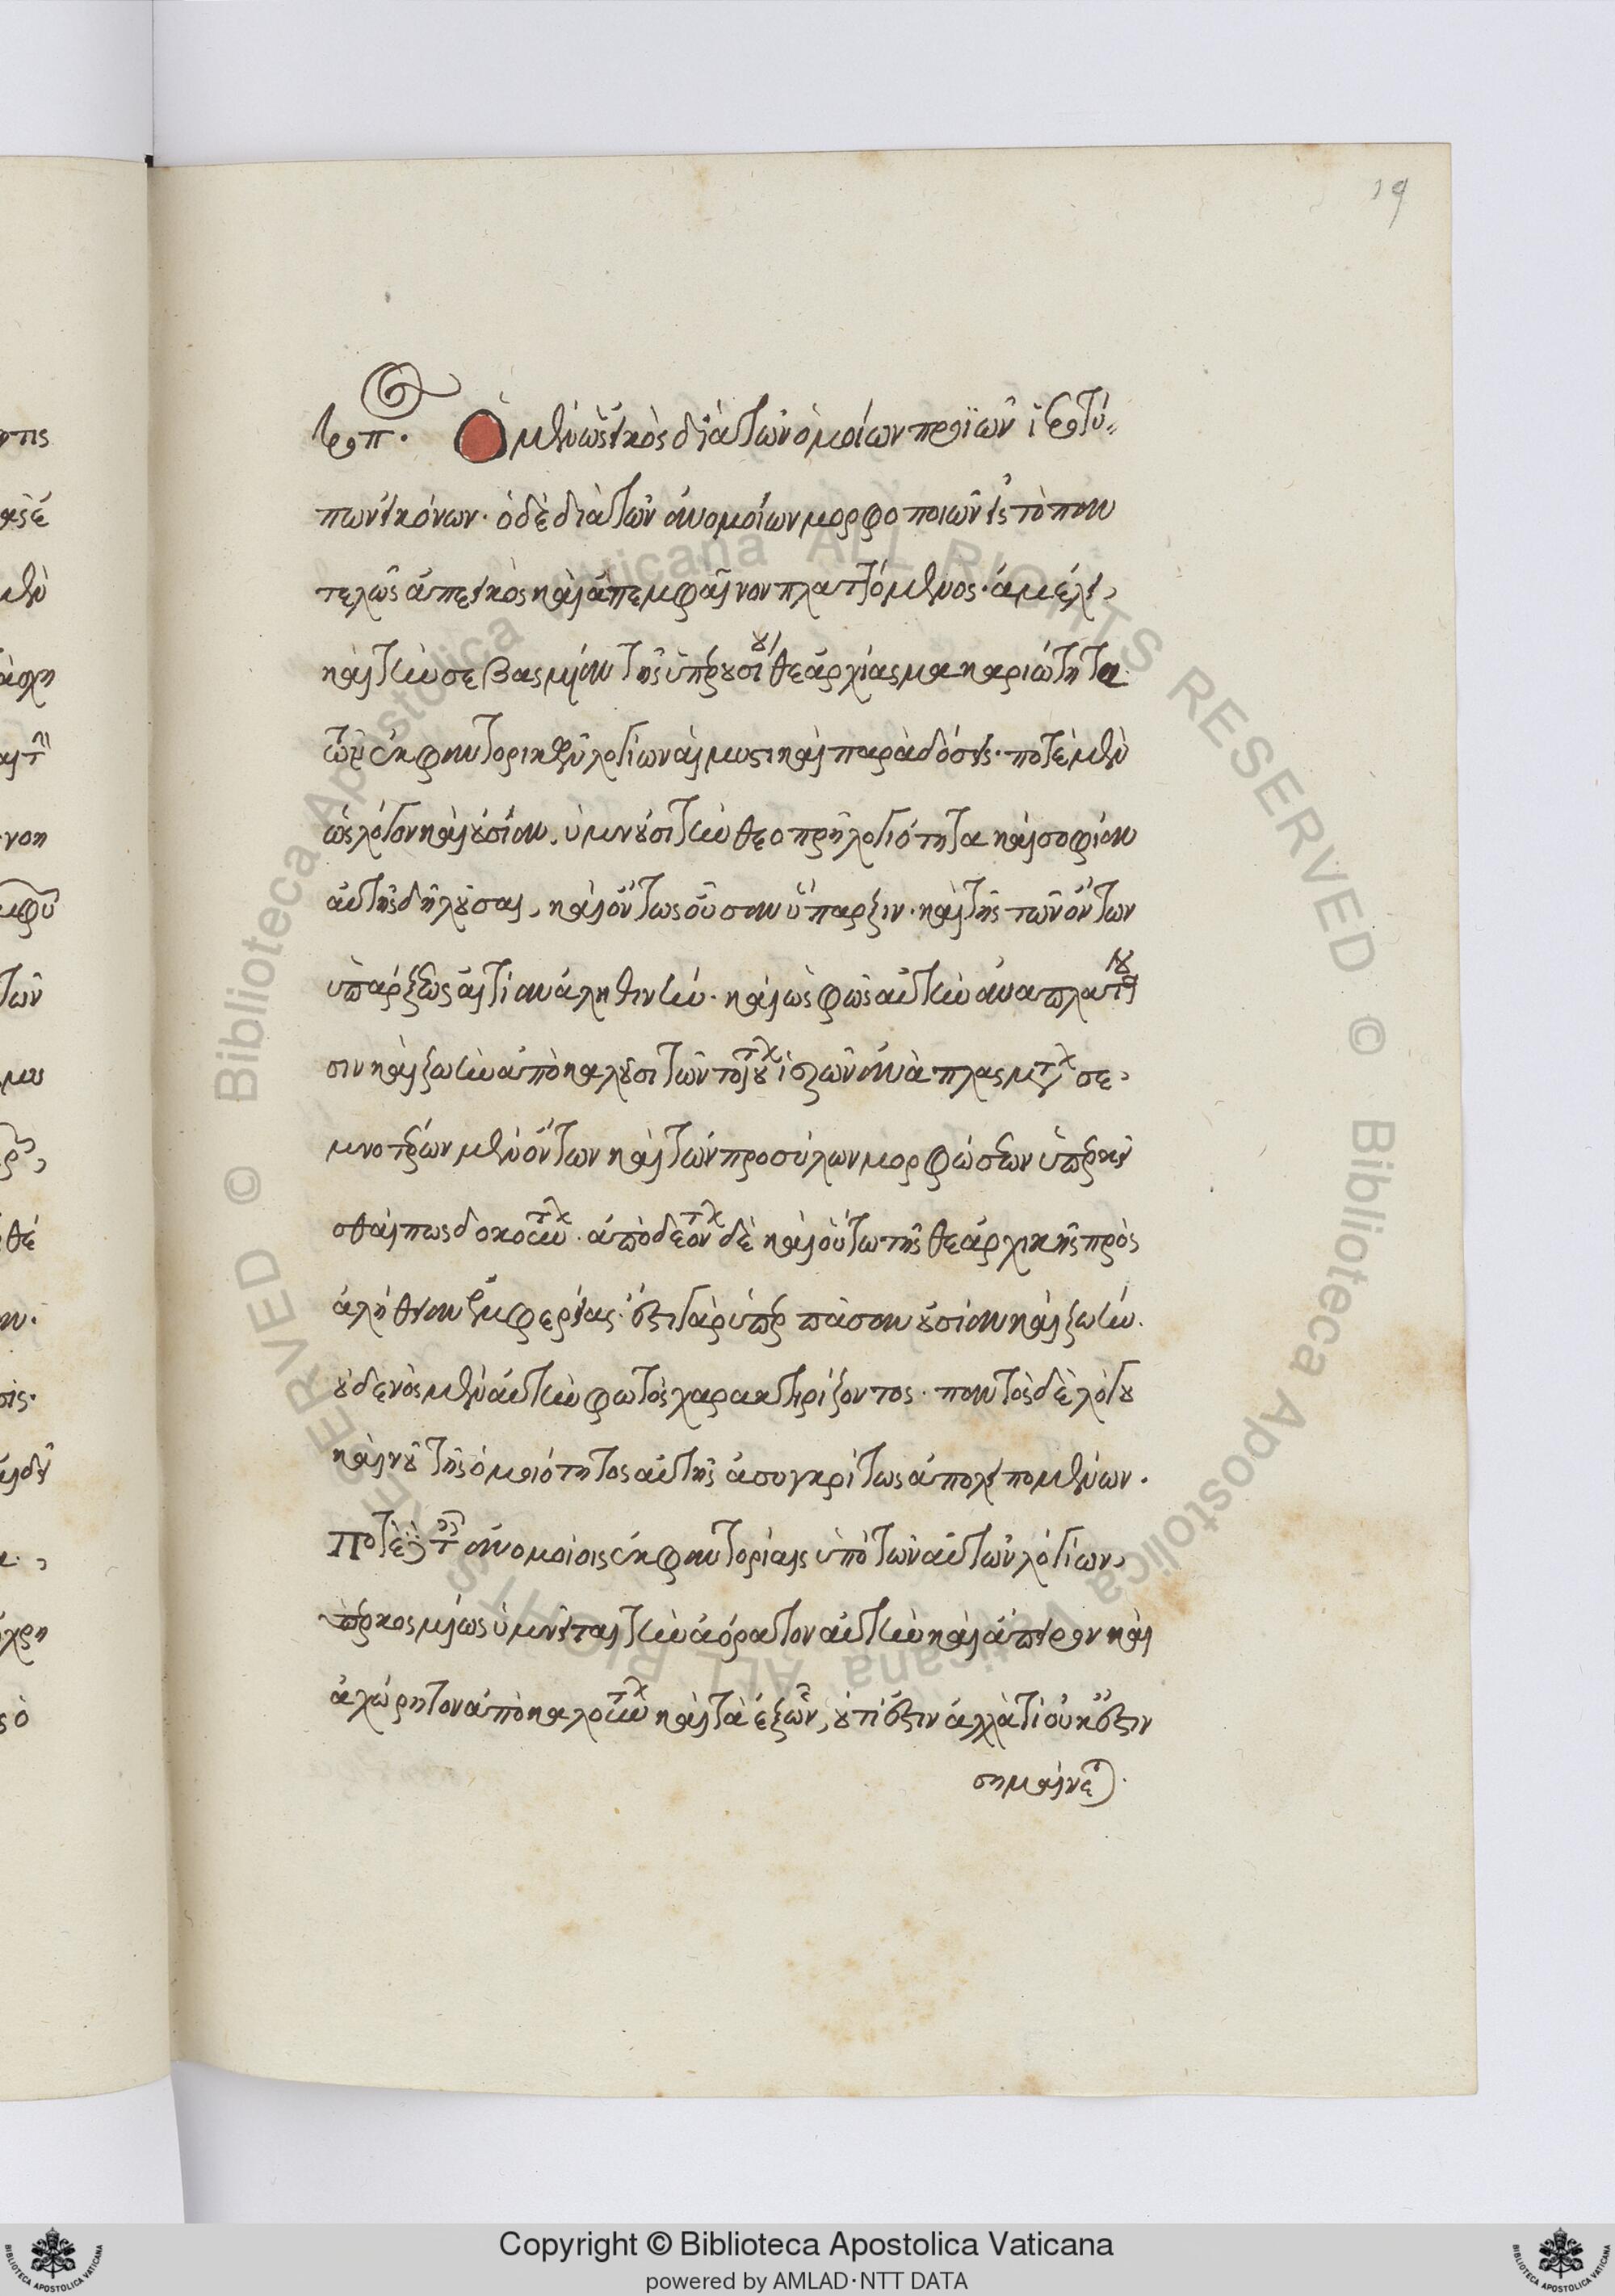 τροπ. Ὁ μὲν ὡς εἰκὸς διὰ τῶν ὁμοίων προϊὼν ἱεροτύ-
πων εἰκόνων· ὁ δὲ διὰ τῶν ἀνομοίων μορφοποιῶν εἰς τὸ παν
τελῶς ἀπεικὸς καὶ ἀπεμφαῖνον πλαττόμενος· ἀμέλει,
καὶ τὴν σεβασμίαν τῆς ὑπερουσίου θεαρχίας μακαριότητα
τῶν ἐκφαντορικῶν λογίων αἱ μυστικαὶ παραδόσεις· ποτὲ μὲν
ὡς λόγον καὶ οὐσίαν, ὑμνοῦσι τὴν θεοπρεπῆ λογιότητα καὶ σοφίαν
αὐτῆς δηλοῦσαι, καὶ ὄντως οὖσαν ὕπαρξιν· καὶ τῆς τῶν ὄντων
ὑπάρξεως αἰτίαν ἀληθινήν· καὶ ὡς φῶς αὐτὴν ἀναπλάττου
σιν καὶ ζωὴν ἀποκαλοῦσι τῶν τοιούτων ἱερῶν ἀναπλασμάτων σε-
μνοτέρων μὲν ὄντων καὶ τῶν προσύλων μορφώσεων ὑπερκεῖ
σθαί πως δοκούντων· ἀποδεόντων δὲ καὶ οὕτω τῆς θεαρχικῆς πρὸς
ἀλήθειαν ἐμφερείας· ἔστι γὰρ ὑπὲρ πᾶσαν οὐσίαν καὶ ζωήν·
οὐδενὸς μὲν αὐτὴν φωτὸς χαρακτηρίζοντος· παντὸς δὲ λόγου
καὶ νοῦ τῆς ὁμοιότητος αὐτῆς ἀσυγκρίτως ἀπολειπομένων·
Ποτὲ δὲ ταῖς ἀνομοίοις ἐκφαντορίαις ὑπὸ τῶν αὐτῶν λογίων,
ὑπερκοσμίως ὑμνεῖται τὴν ἀόρατον αὐτὴν καὶ ἄπειρον καὶ
ἀχώρητον ἀποκαλούντων καὶ τὰ ἐξ ὧν, οὐ τί ἔστιν ἀλλὰ τί οὐκ ἔστιν
σημαίνεται.
19
Copyright © Biblioteca Apostolica Vaticana
powered by AMLAD·NTT DATA